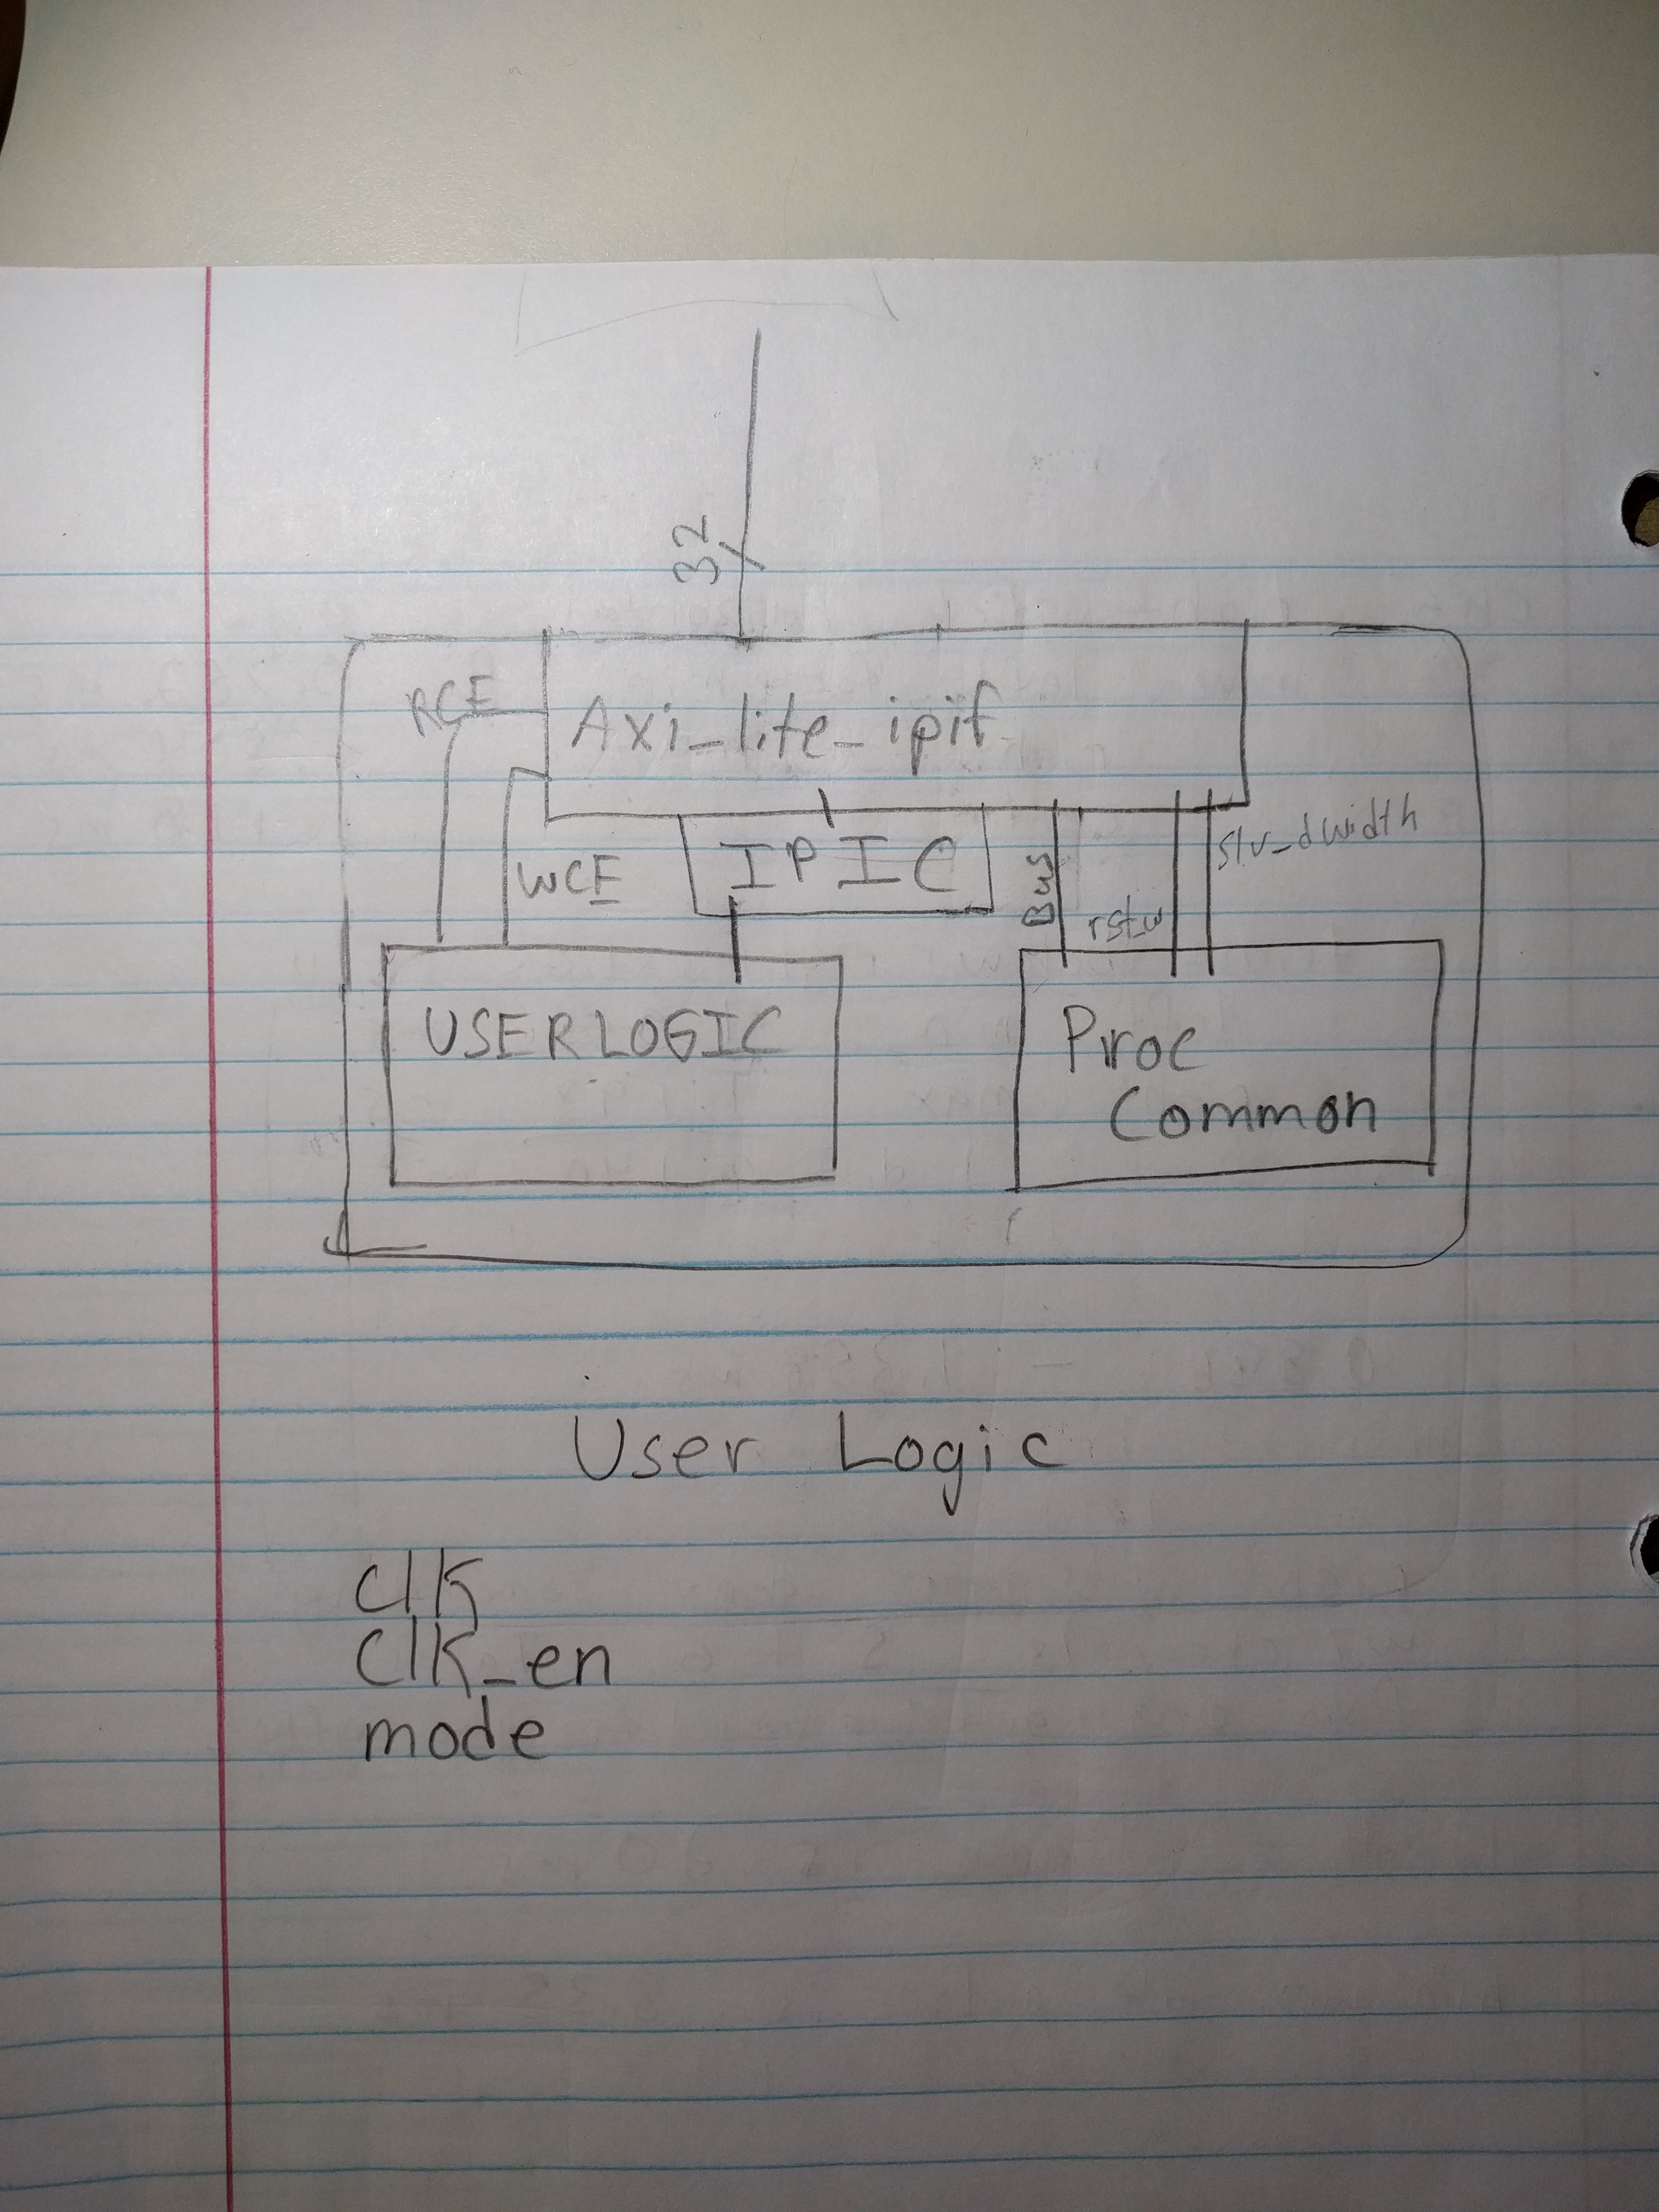 32
RCE
Axi_lite_ipif
WCE
IPIC
Bus
rst_w
slv_dwidth
USER LOGIC
Proc
Common
User Logic
clk
clk_en
mode